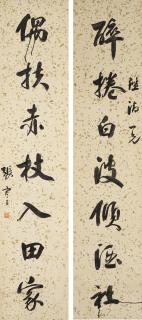 醉捲白波傾酒社
偶扶赤杖入田家